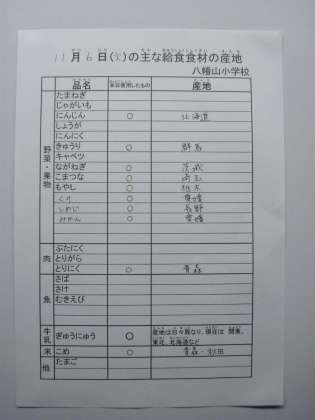 11月6日(火)の主な給食食材の産地
八幡山小学校
品名 本日使用したもの 産地
野菜・果物
たまねぎ
じゃがいも
にんじん ○ 北海道
しょうが
にんにく
きゅうり ○ 群馬
キャベツ
ながねぎ ○ 茨城
こまつな ○ 埼玉
もやし ○ 栃木
くり ○ 愛媛
しめじ ○ 長野
みかん ○ 愛媛
肉
ぶたにく
とりがら
とりにく ○ 青森
魚
さば
さけ
むきえび
牛乳 ぎゅうにゅう ○ 産地は日々異なり、現在は 関東、
東北、北海道など
米 こめ ○ 青森・秋田
他 たまご